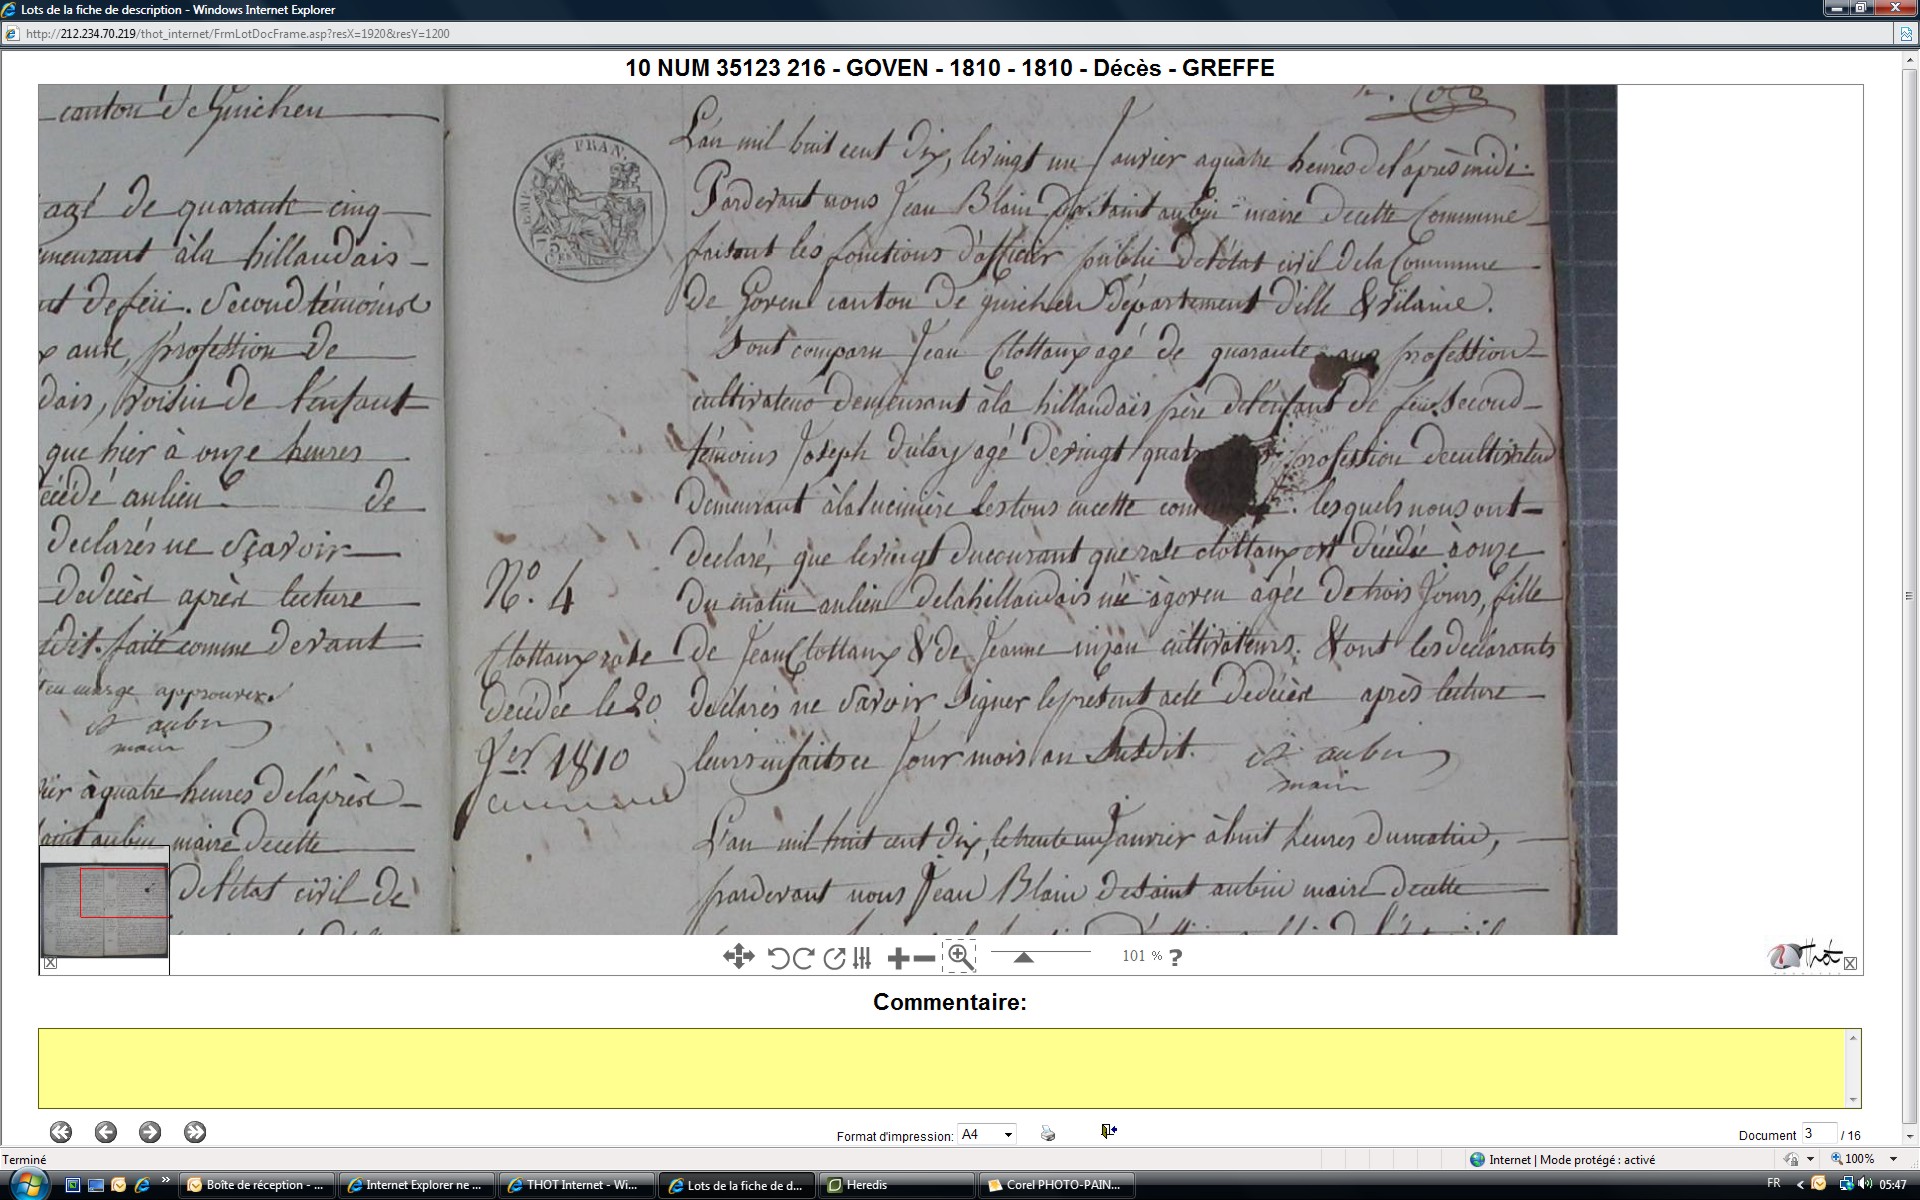 Lots de la fiche de description - Windows Internet Explorer
http://212.234.70.219/thot_internet/FrmLotDocFrame.asp?resX=1920&resY=1200
10 NUM 35123 216 - GOVEN - 1810 - 1810 - Décès - GREFFE
canton de Guichen
agé de quarante cinq
meurant àla hillaudais
de feu. Second témoins
profession de
dais, voisin de l'enfant
que hier à onze heures
écédé au lieu de
declarés ne sçavoir
dedécès après lecture
dit. faitte comme devant
en marge approuvée
St aubin
maire
à quatre heures de l'après
aint aubin maire decette
de l'état civil de
FRAN.
N°. 4
Clottaux rose
décédée le 20
Jer 1810
L'an mil huit cent dix, le vingt un Janvier a quatre heures de l'après midi.
Pardevant nous Jean Blain de Saint aubin maire decette Commune
faisant les fonctions d'officier publie de l'état civil de la Commune
de Goven canton de guichen Département d'ille & vilaine.
Sont comparu Jean Clottaux agé de quarante ans profession
cultivateur demeurant àla hillaudais père de l'enfant de feu. Second
témoins Joseph agé de vingt quatre profession de cultivateur
demeurant à les tous en cette . lesquels nous ont
declaré, que le vingt du courant que rose clottaux est décédée à onze
du matin au lieu de la hillaudais née à goven agée de trois Jours, fille
de Jean Clottaux & de Jeanne cultivateurs. & ont les declarants
declarés ne savoir signer le présent acte de décès après lecture
leurs en faitte ce Jour mois an Susdit. St aubin
maire
L'an mil huit cent dix, le trente un Janvier à huit heures du matin,
pardevant nous Jean Blain de saint aubin maire decette
101 % ?
Thot
Commentaire:
Format d'impression: A4
Document 3 / 16
Terminé
Internet | Mode protégé : activé
100%
Boîte de réception - ...
Internet Explorer ne ...
THOT Internet - Wi...
Lots de la fiche de d...
Heredis
Corel PHOTO-PAIN...
FR
05:47